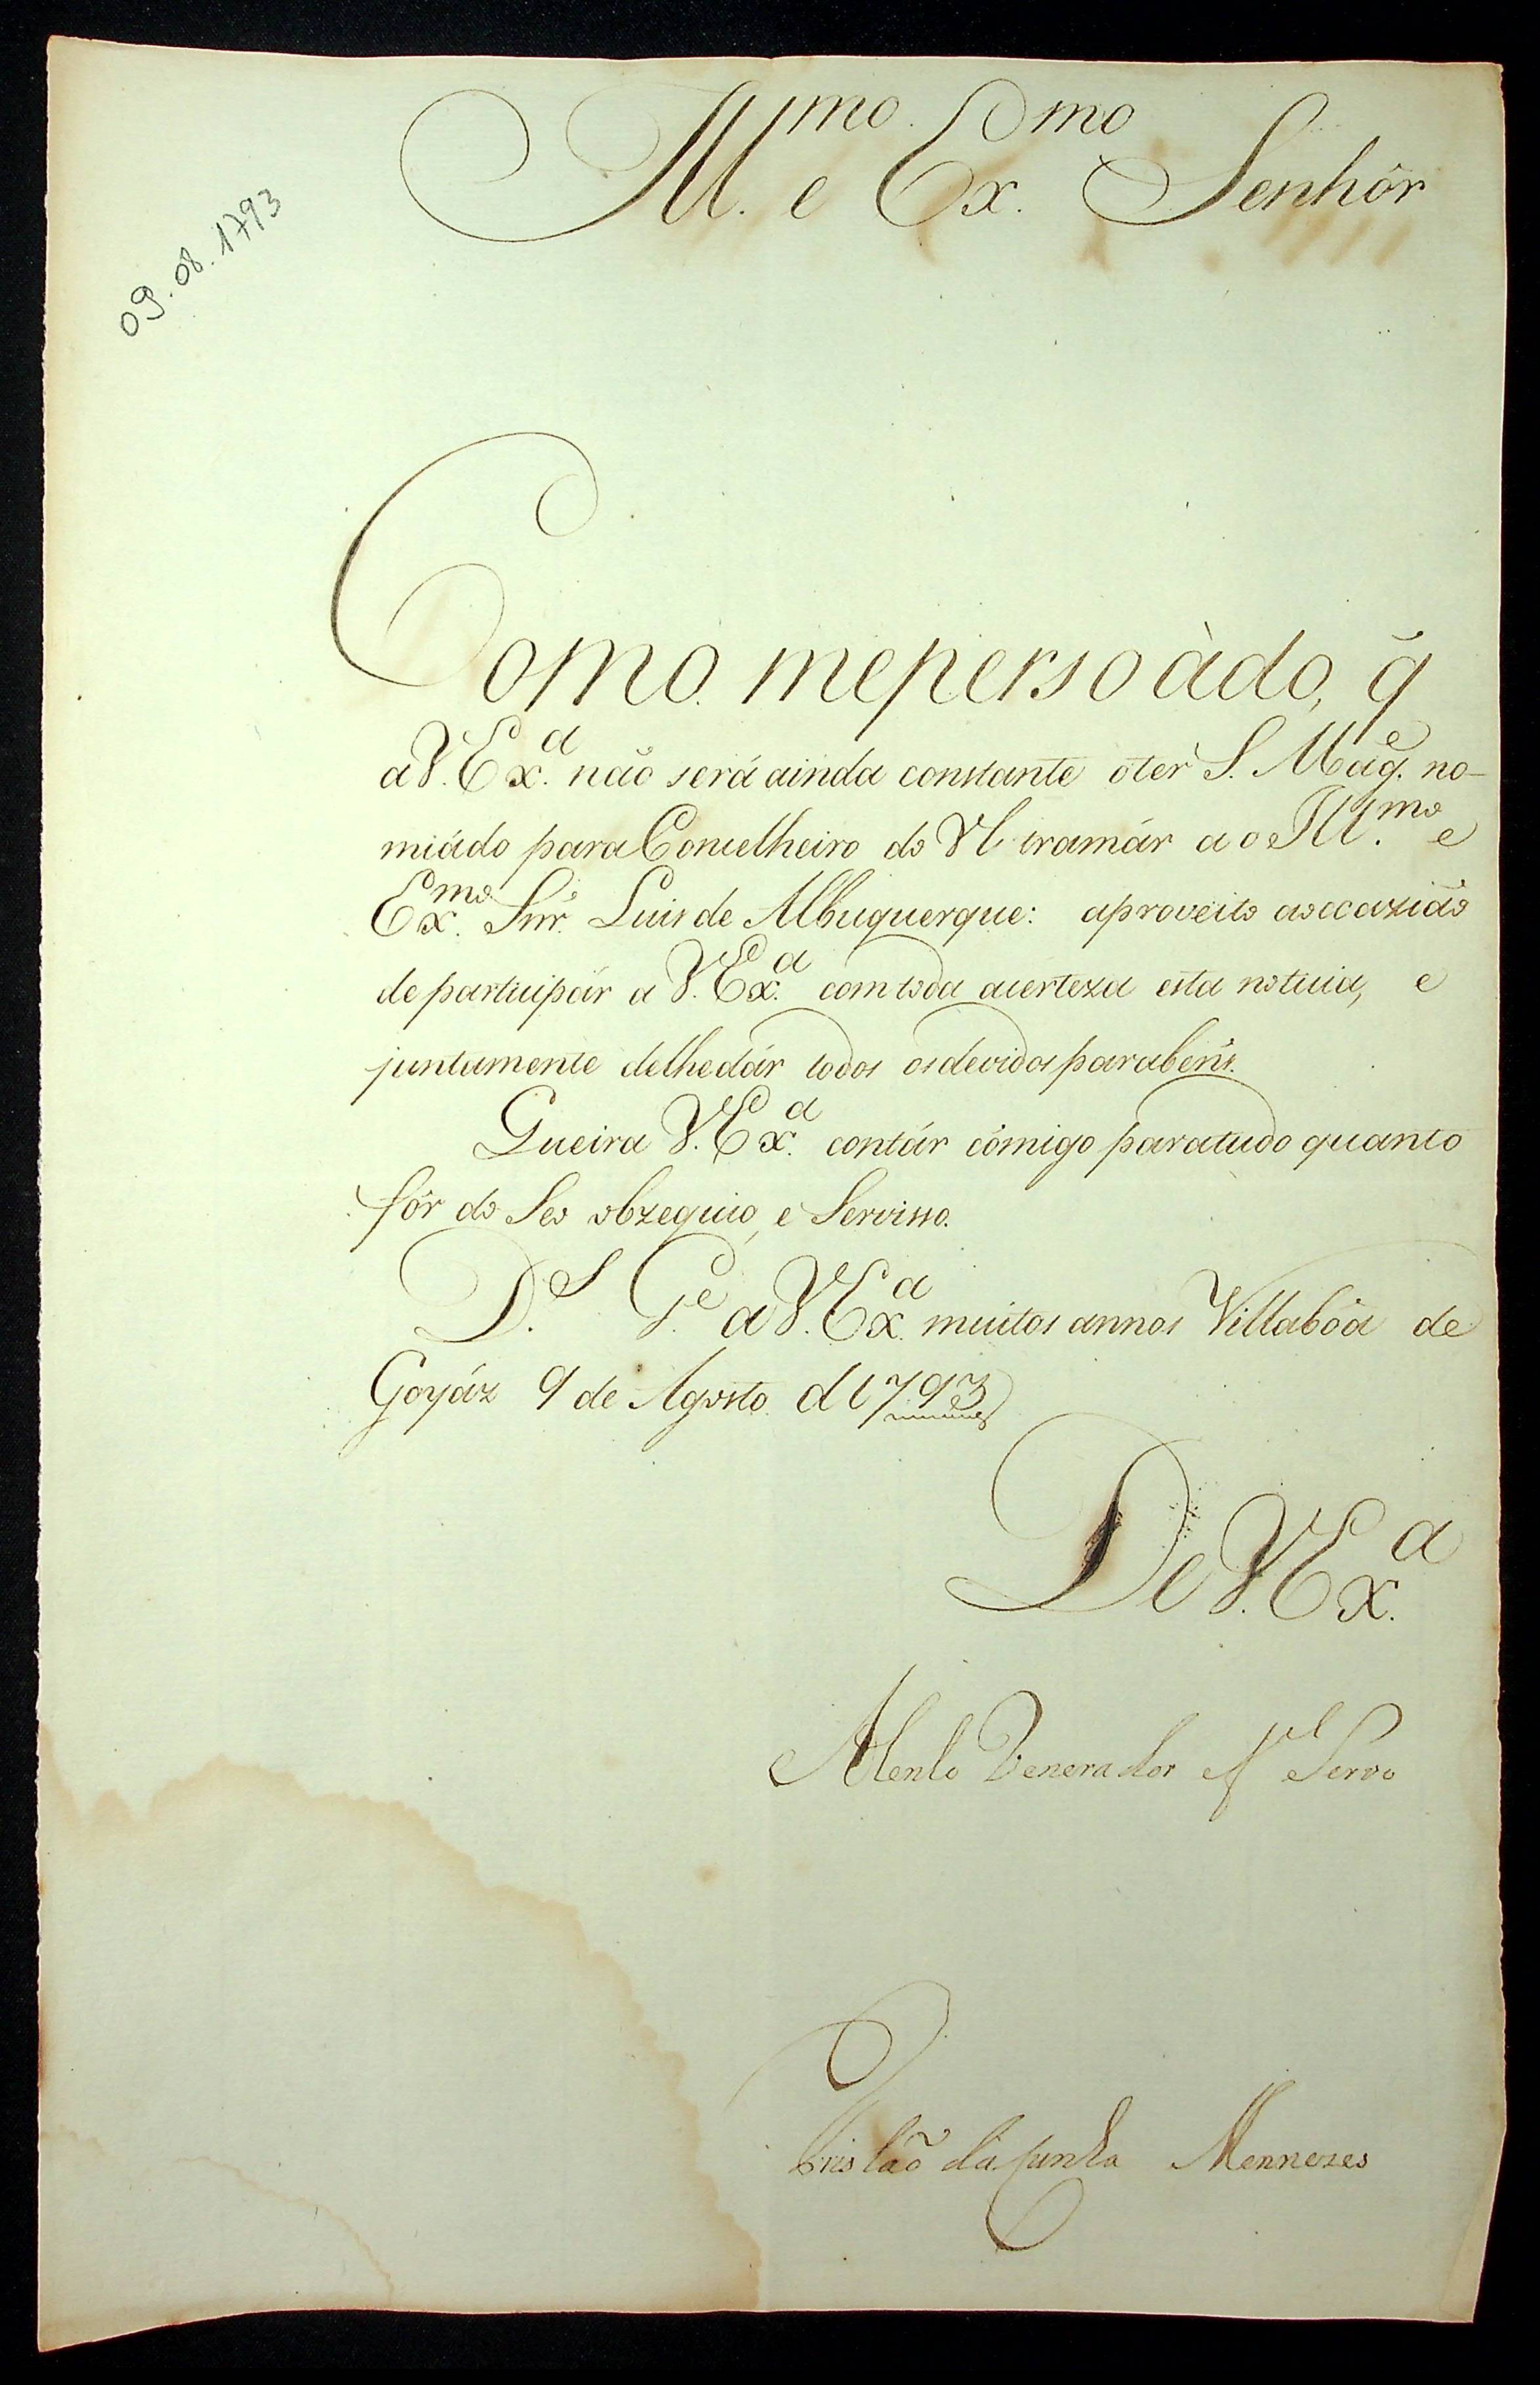 Ill.mo e Ex.mo Senhôr
09.08.1793
Como me persoàdo, q̃
a V. Ex.a não será ainda constante o ter S. Mag.e no-
miádo para Conselheiro do Ultramár ao Ill.mo e
Ex.mo Snr. Luis de Albuquerque: aproveito a occazião
de participár a V. Ex.a com toda acerteza esta noticia, e
juntamente delhedár todos os devidos parabens.
Queira V. Ex.a contár cómigo para tudo quanto
fôr do Seo obzequio, e Servisso.
D.s G.e a V. Ex.a muitos annos Villabôa de
Goyáz 9 de Agosto d 1793
De V. Ex.a
Atento Venerador e Servo
Tristão da Cunha Mennezes